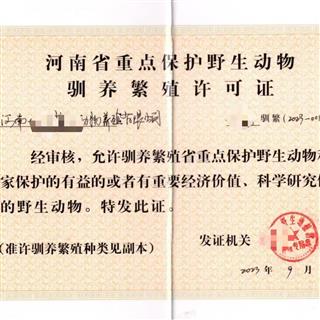 河南省重点保护野生动物
驯养繁殖许可证
驯繁(2023-00
经审核，允许驯养繁殖省重点保护野生动物和
家保护的有益的或者有重要经济价值、科学研究价
的野生动物。特发此证。
(准许驯养繁殖种类见副本)
发证机关
2023 年 9 月